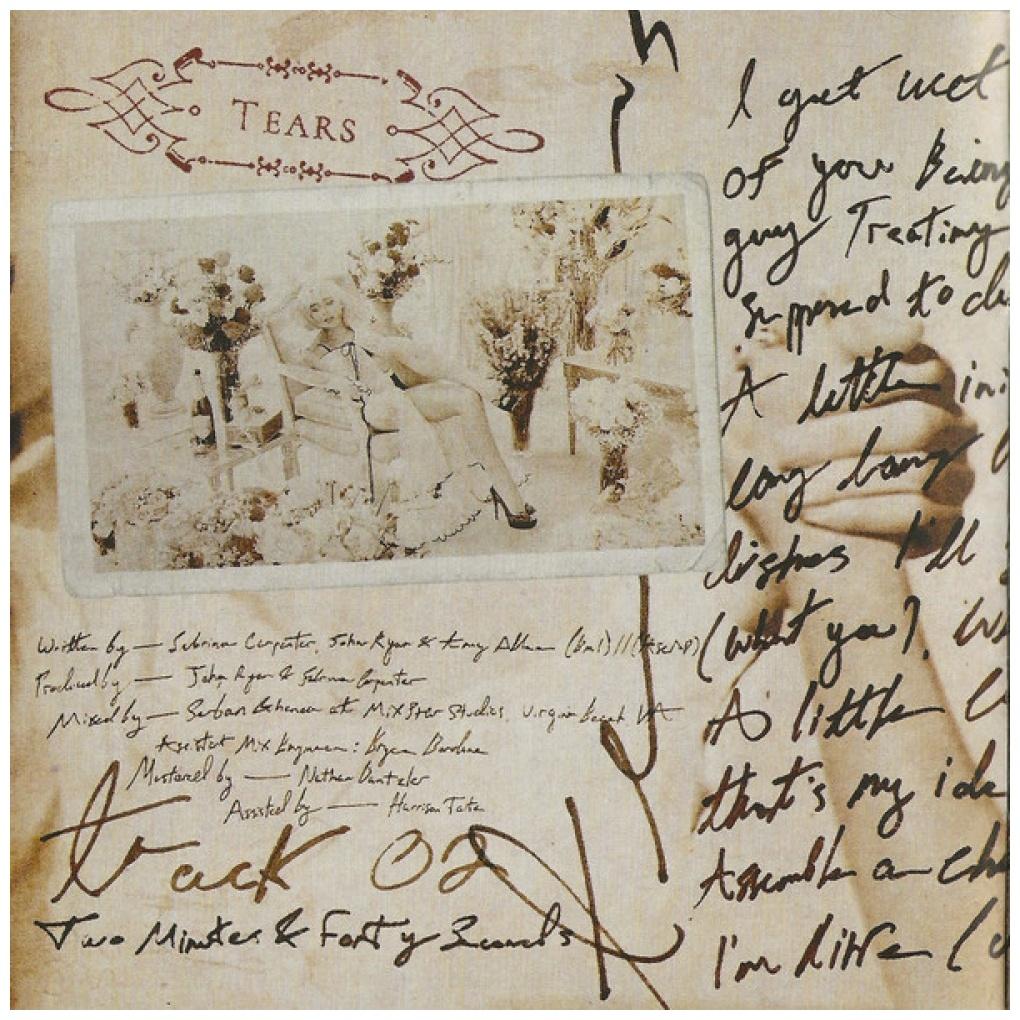 TEARS
Written by — Sabrina Carpenter, John Ryan & Amy Allen (BMI)//(ASCAP)
Produced by — John Ryan & Sabrina Carpenter
Mixed by — Serban Ghenea at MixStar Studios, Virginia Beach VA
Assistant Mix Engineer: Bryce Bordone
Mastered by — Nathan Dantzler
Assisted by — Harrison Tate
track 02
Two Minutes & Forty Seconds
I get wet
of you Being
guy Treating
Supposed to
A little
long way
dishes I'll
(what you),
A little
that's my
Assemble a
I'm like (